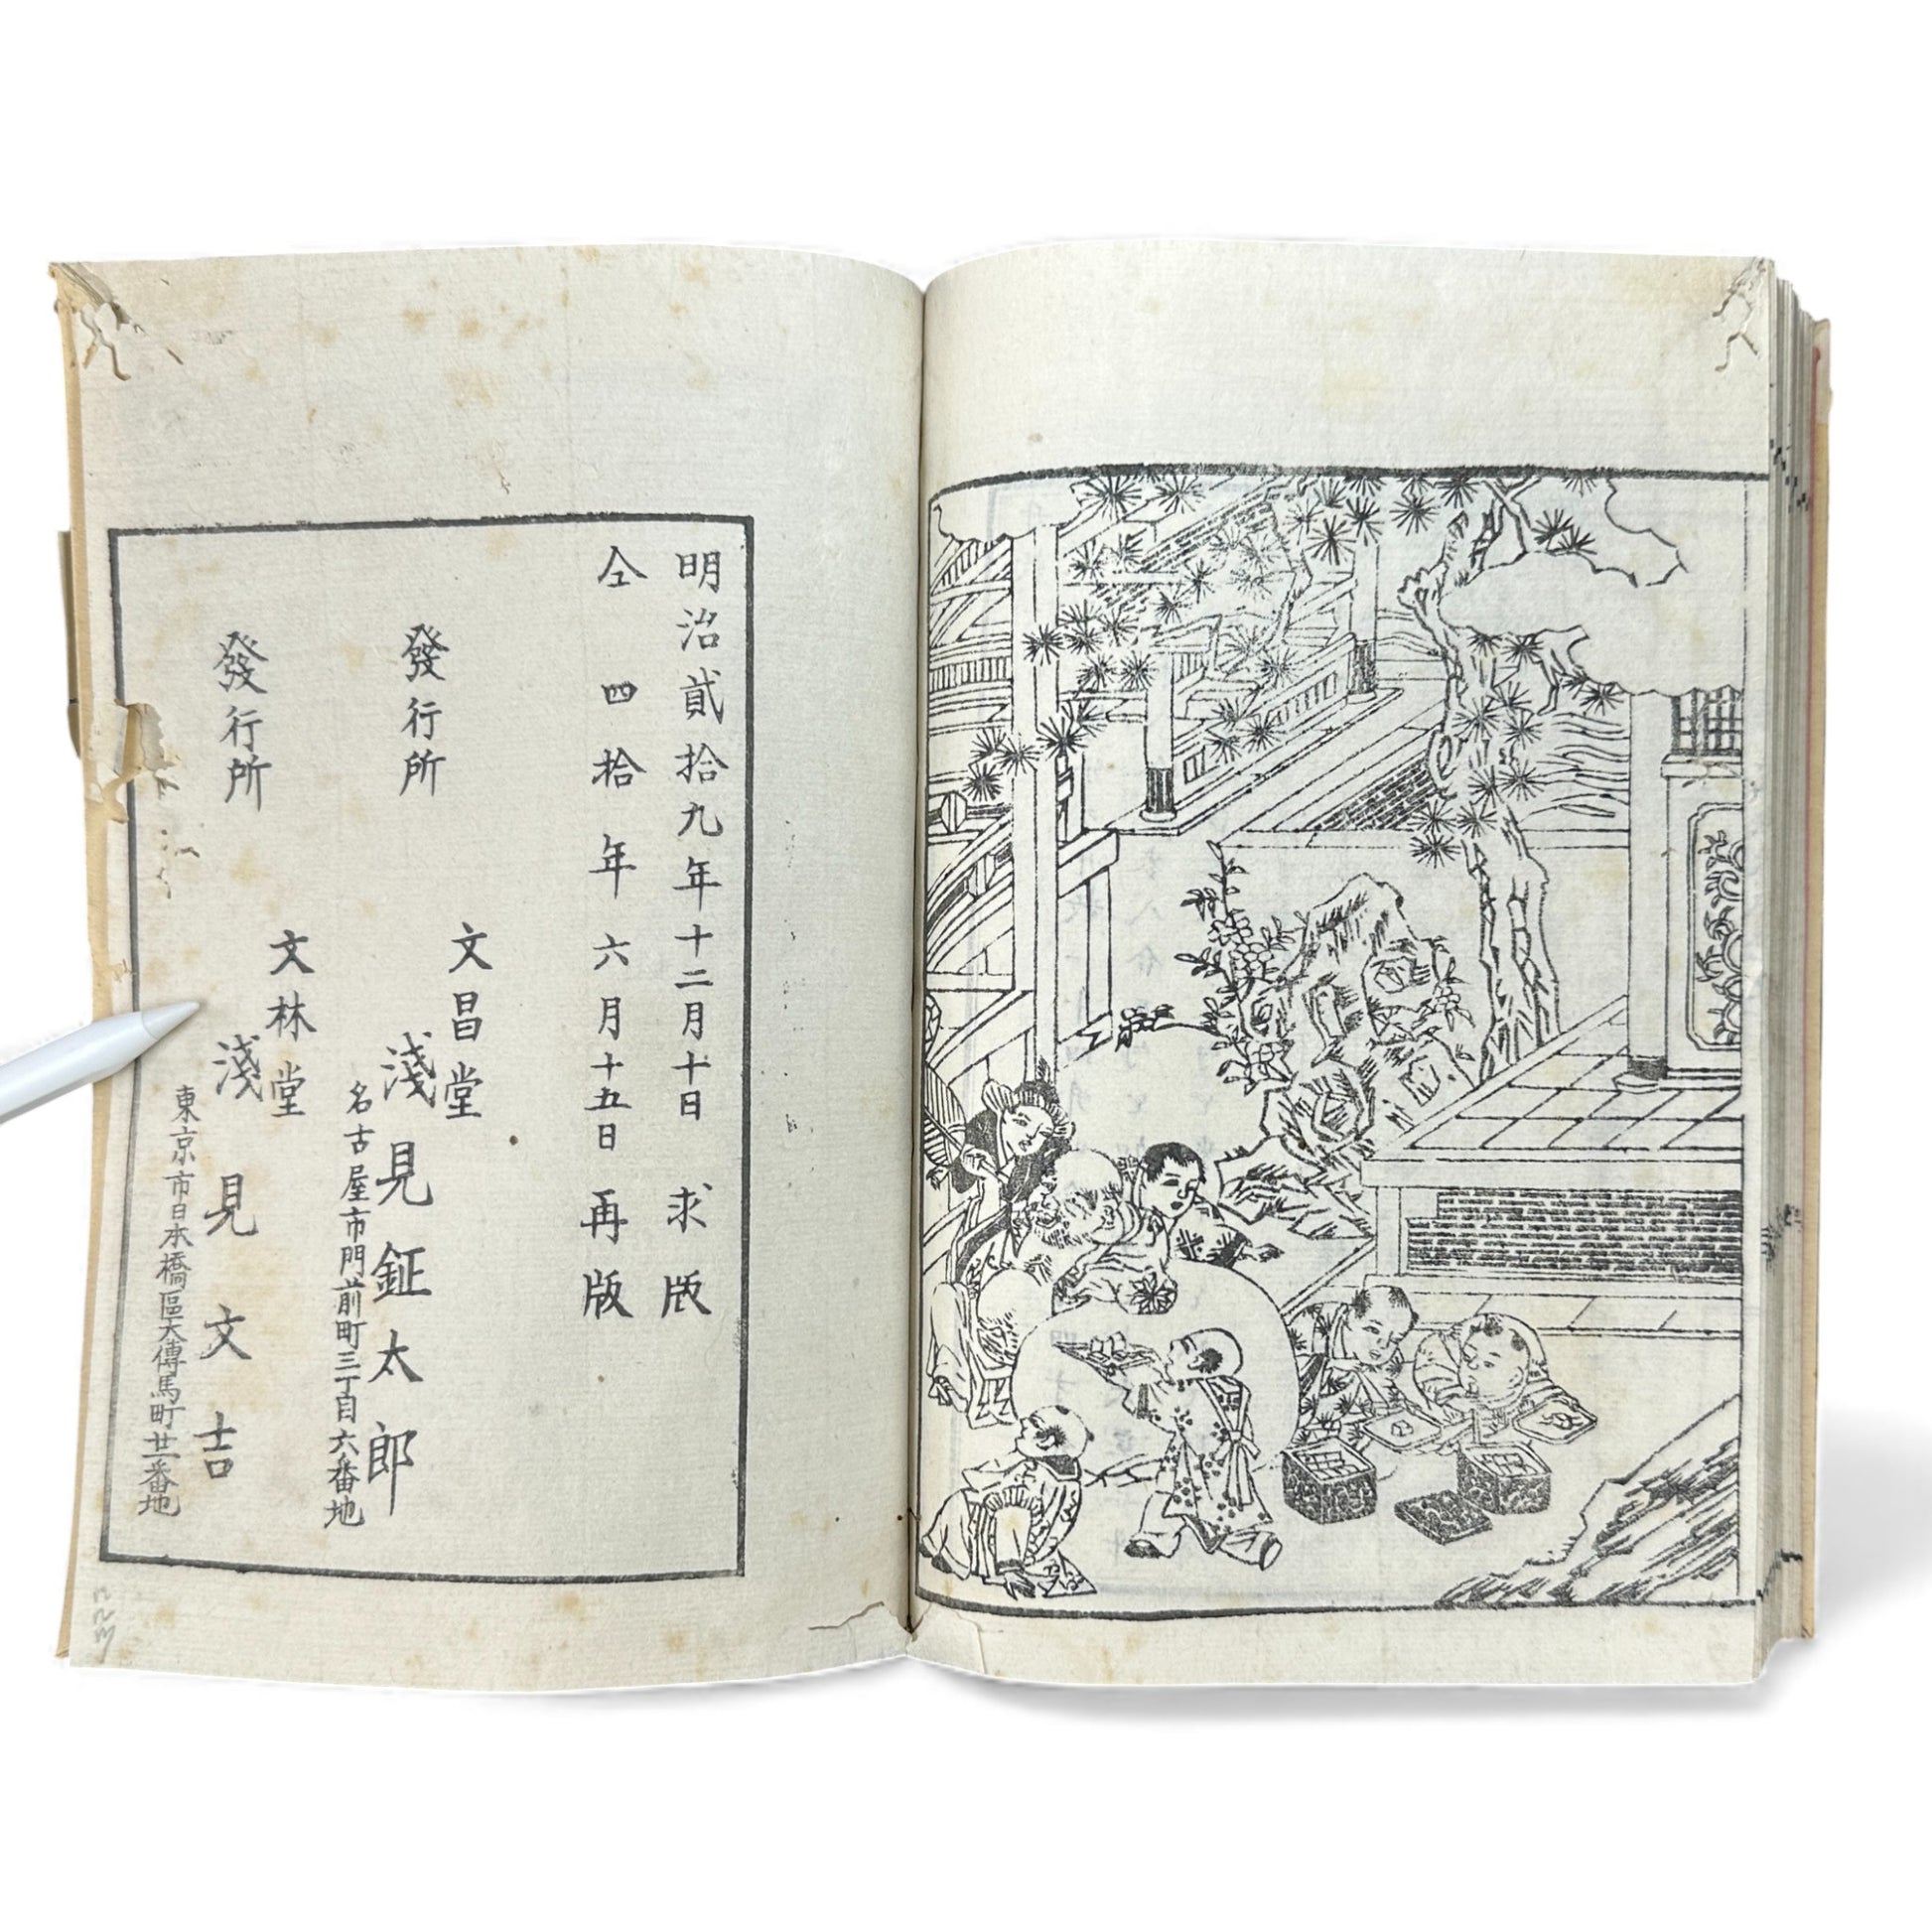 明治貳拾九年十二月十日 求版
仝 四拾年六月十五日 再版
發行所
文昌堂
淺見鉦太郎
名古屋市門前町三丁目六番地
發行所
文林堂
淺見文吉
東京市日本橋區大傳馬町廿一番地